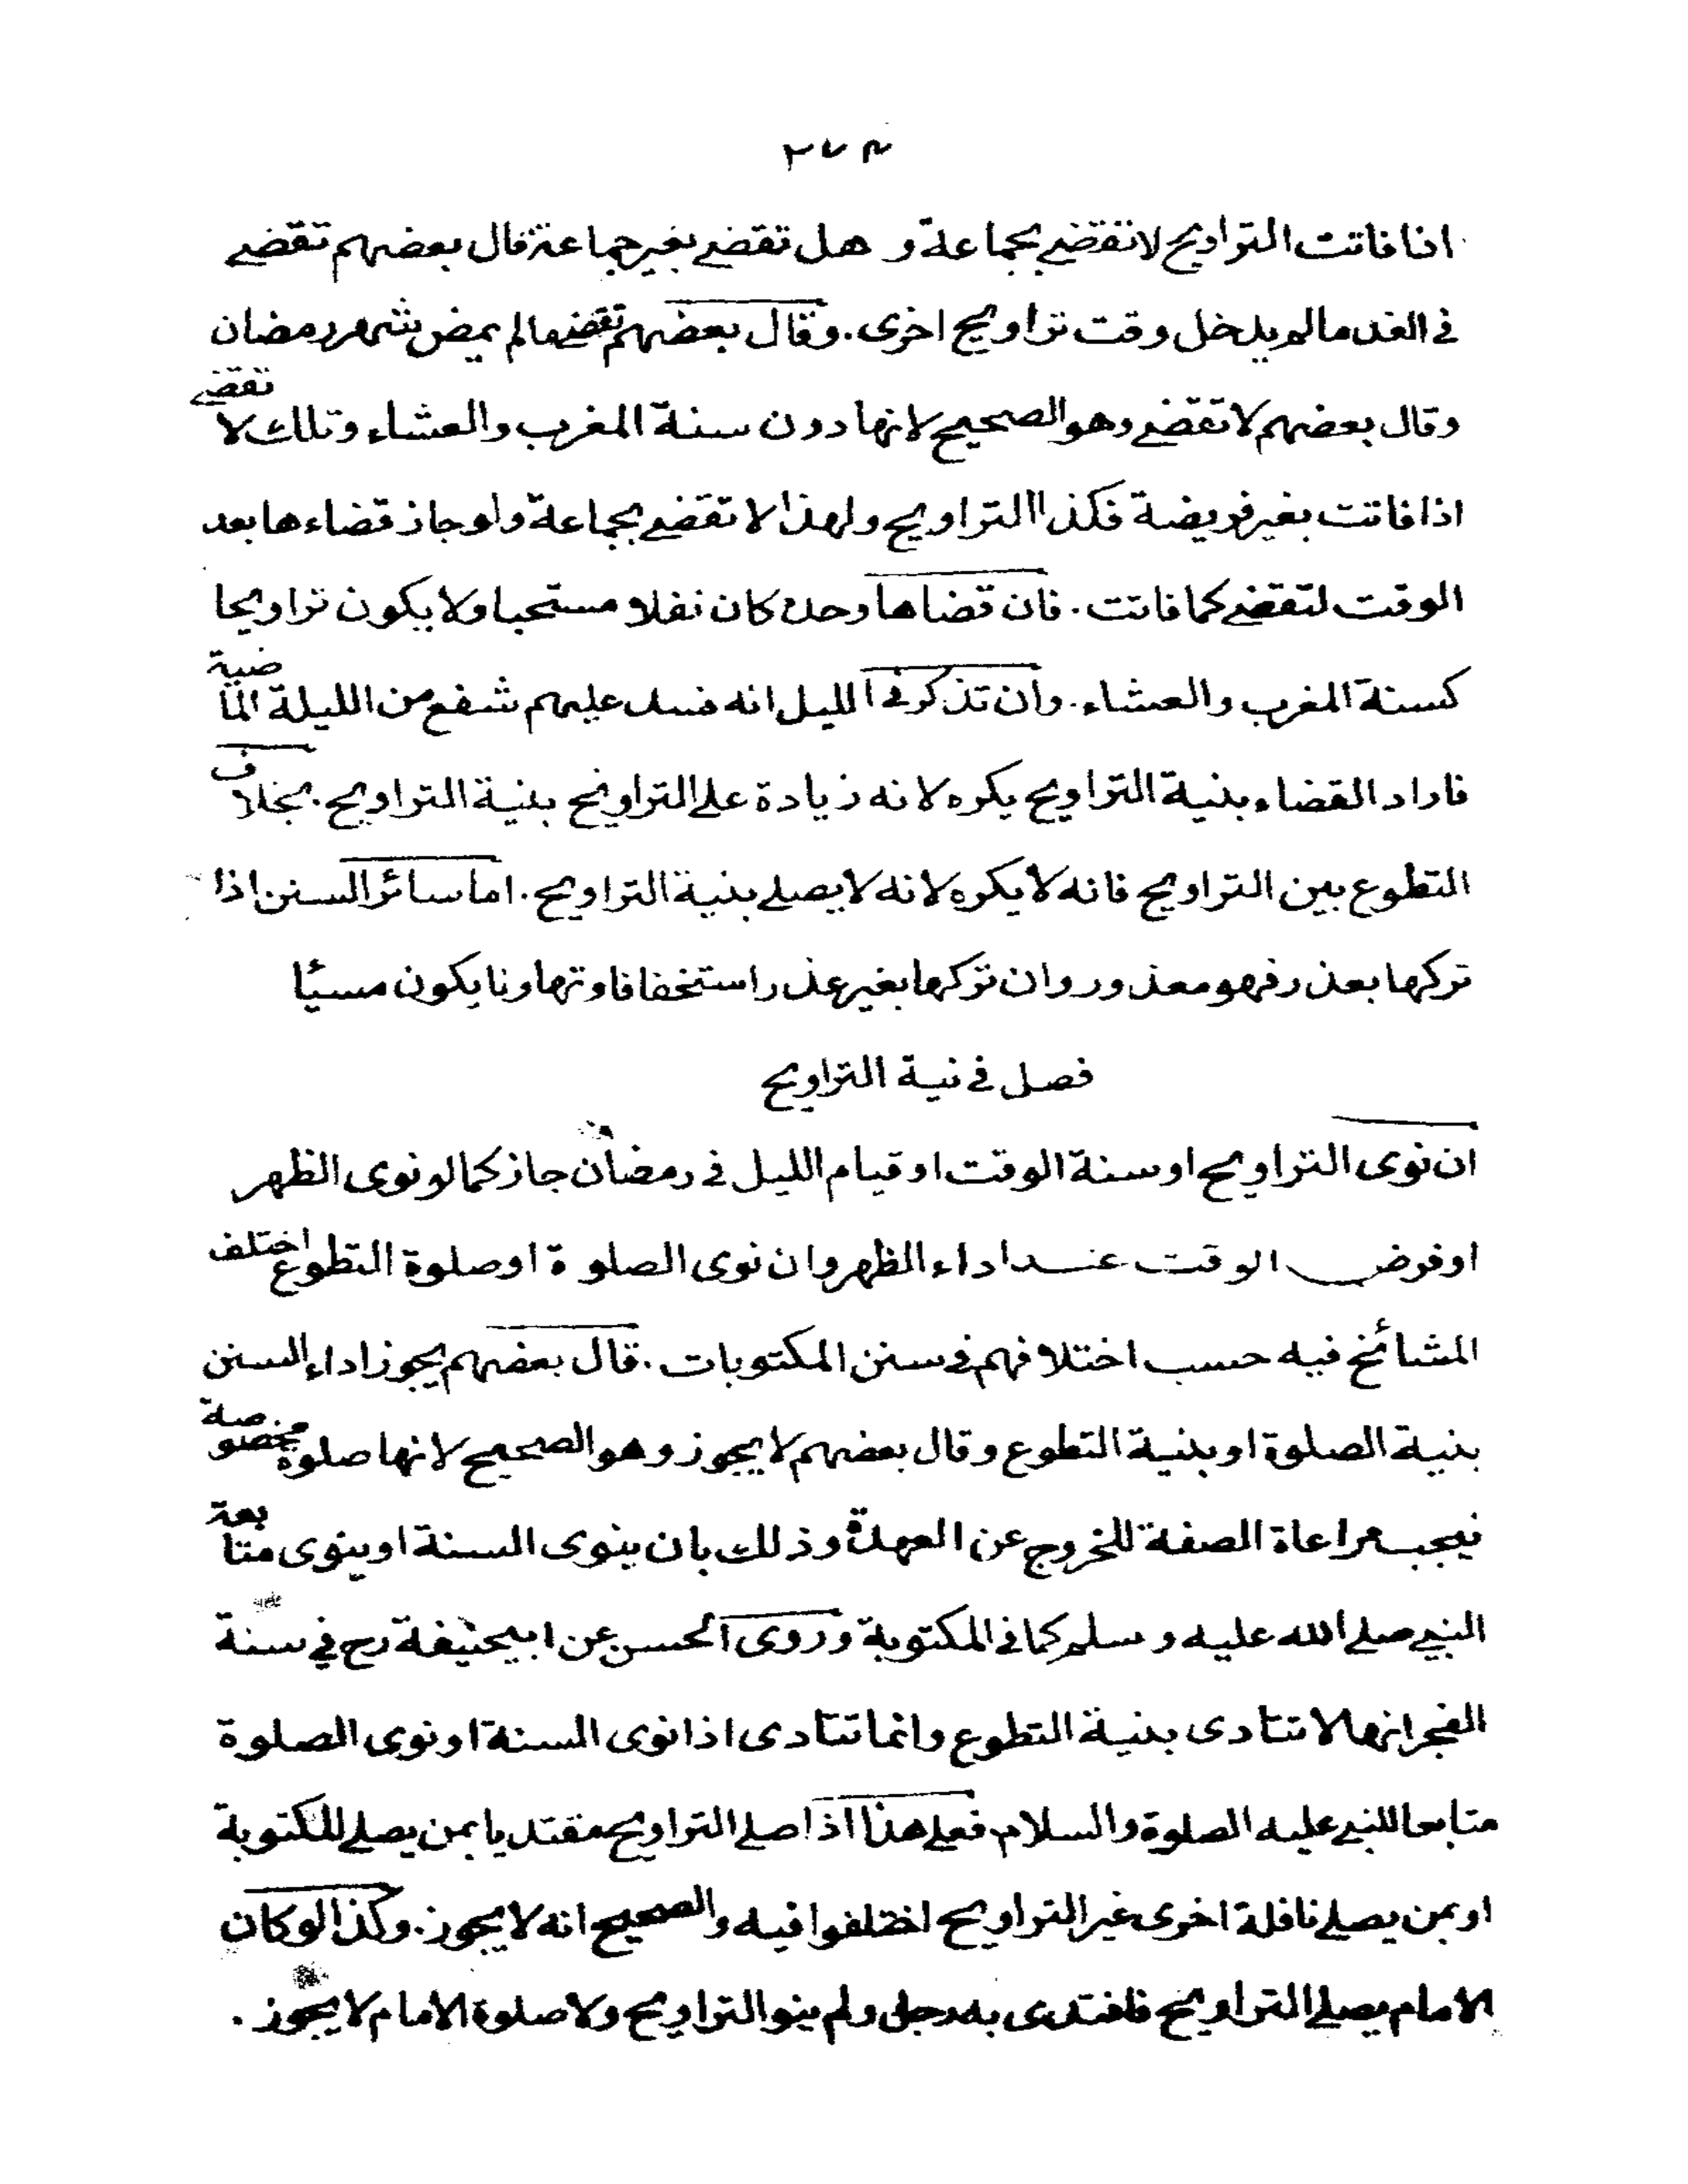 ٢٧٤
اذا فاتت التراويح لا تقضے بجماعة و هل تقضے بغير جماعة قال بعضهم تقضے
فى الغد مالم يدخل وقت تراويح اخرى. وقال بعضهم تقضے مالم يمض شهر رمضان
وقال بعضهم لا تقضے وهو الصحيح لانها دون سنة المغرب والعشاء وتلك لا تقضے
اذا فاتت بغير فريضة فكذا التراويح ولهذا لا تقضے بجماعة ولو جاز قضاءها بعد
الوقت لتقضے كما فاتت. فان قضاها وحده كان نفلا مستحبا ولا يكون تراويحا
كسنة المغرب والعشاء. وان تذكر فى الليل انه فسد عليهم شفع من الليلة الماضية
فاراد القضاء بنية التراويح يكره لانه زيادة على التراويح بنية التراويح. بخلاف
التطوع بين التراويح فانه لا يكره لانه لا يصلے بنية التراويح. اما سائر السنن اذا
تركها بعذر فهو معذور وان تركها بغير عذر استخفافا وتهاونا يكون مسيئا
فصل فى نية التراويح
ان نوى التراويح او سنة الوقت او قيام الليل فى رمضان جاز كما لو نوى الظهر
او فرض الوقت عند اداء الظهر وان نوى الصلوة او صلوة التطوع اختلف
المشائخ فيه حسب اختلافهم فى سنن المكتوبات. قال بعضهم يجوز اداء السنن
بنية الصلوة او بنية التطوع وقال بعضهم لا يجوز وهو الصحيح لانها صلوة مخصوصة
فيجب مراعاة الصفة للخروج عن العهدة وذلك بان ينوى السنة او ينوى متابعة
النبے صلے الله عليه وسلم كما فى المكتوبة وروى الحسن عن ابيحنيفة رح فى سنة
الفجر انها لا تتادى بنية التطوع وانما تتادى اذا نوى السنة او نوى الصلوة
متابعا للنبے عليه الصلوة والسلام فعلے هذا اذا صلے التراويح مقتديا بمن يصلے المكتوبة
او بمن يصلے نافلة اخرى غير التراويح اختلفوا فيه والصحيح انه لا يجوز. وكذا لو كان
الامام يصلے التراويح فاقتدى به رجل ولم ينو التراويح ولا صلوة الامام لا يجوز.